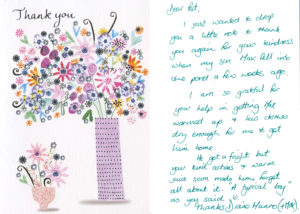 Thank you
Dear Pat,
I just wanted to drop
you a little note to thank
you again for your kindness
when my son Max fell into
the pond a few weeks ago.
I am so grateful for
your help in getting him
warmed up & his clothes
dry enough for me to get
him home.
He got a fright but
your kind actions & warm
soon made him forget
all about it. "A typical boy"
as you said.
Thanks,